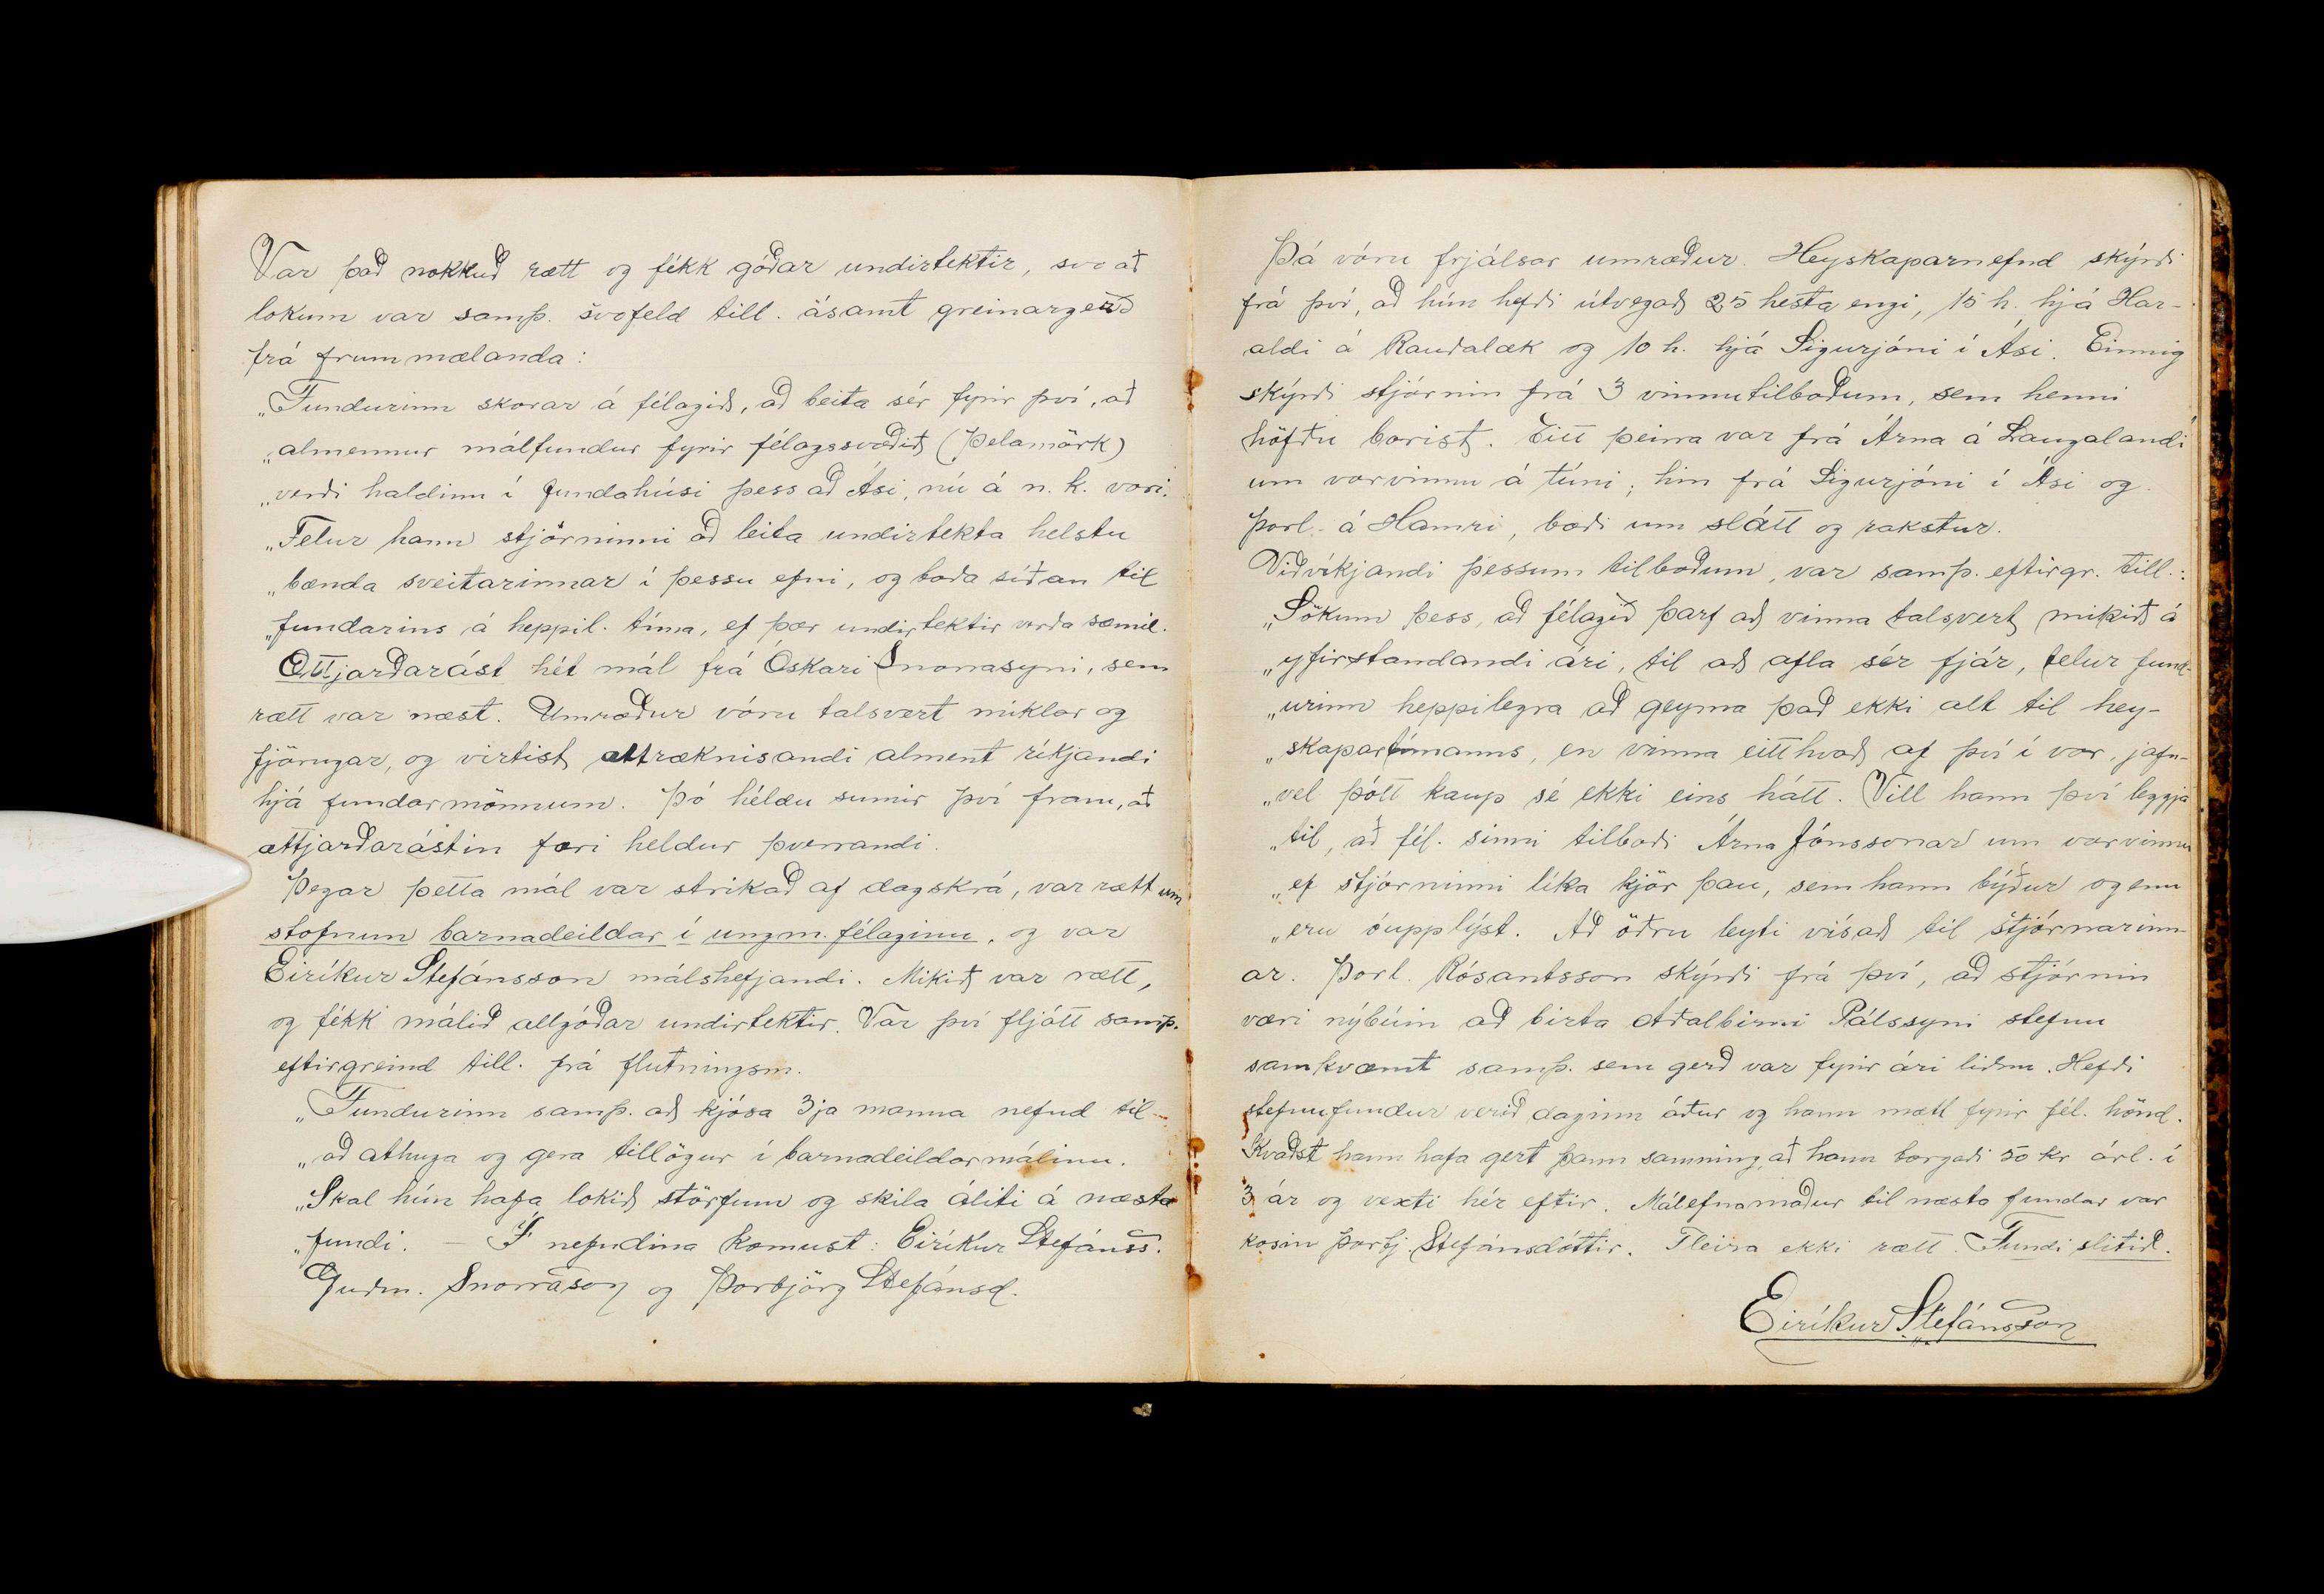 Var það nokkuð rætt og fékk góðar undirtektir, svo að
lokum var samþ. svofeld till. ásamt greinargerð
frá frummælanda:
„Fundurinn skorar á félagið, að beita sér fyrir því, að
„almennur málfundur fyrir félagssvæðið (Þelamörk)
„verði haldinn í fundahúsi þess að Ási, nú á n. k. vori.
„Felur hann stjórninni að leita undirtekta helstu
„bænda sveitarinnar í þessu efni, og boða síðan til
„fundarins á heppil. tíma, ef þær undirtektir verða sæmil.
Ættjarðarást hét mál frá Óskari Snorrasyni, sem
rætt var næst. Umræður vóru talsvert miklar og
fjörugar, og virtist ættræknisandi alment ríkjandi
hjá fundarmönnum. Þó héldu sumir því fram, að
ættjarðarástin færi heldur þverrandi.
Þegar þetta mál var strikað af dagskrá, var rætt um
stofnun barnadeildar í ungm. félaginu, og var
Eiríkur Stefánsson málshefjandi. Mikið var rætt,
og fékk málið allgóðar undirtektir. Var því fljótt samþ.
eftirgreind till. frá flutningsm.
„Fundurinn samþ. að kjósa 3ja manna nefnd til
„að athuga og gera tillögur í barnadeildarmálinu.
„Skal hún hafa lokið störfum og skila áliti á næsta
„fundi. – Í nefndina komust: Eiríkur Stefánss.
Guðm. Snorrason og Þorbjörg Stefánsd.
Þá vóru frjálsar umræður. Heyskaparnefnd skýrði
frá því, að hún hefði útvegað 25 hesta engi, 15 h. hjá Har-
aldi á Rauðalæk og 10 h. hjá Sigurjóni í Ási. Einnig
skýrði stjórnin frá 3 vinnutilboðum, sem henni
höfðu borist. Eitt þeirra var frá Árna á Laugalandi
um vorvinnu á túni; hin frá Sigurjóni í Ási og
Þorl. á Hamri, bæði um slátt og rakstur.
Viðvíkjandi þessum tilboðum, var samþ. eftirgr. till.:
„Sökum þess, að félagið þarf að vinna talsvert mikið á
„yfirstandandi ári, til að afla sér fjár, telur fund-
„urinn heppilegra að geyma það ekki alt til hey-
„skapartímanns, en vinna eitthvað af því í vor, jafn-
„vel þótt kaup sé ekki eins hátt. Vill hann því leggja
„til, að fél. sinni tilboði Árna Jónssonar um vorvinnu
„ef stjórninni líka kjör þau, sem hann býður og enn
„eru óupplýst. Að öðru leyti vísað til stjórnarinn-
ar. Þorl. Rósantsson skýrði frá því, að stjórnin
væri nýbúin að birta Aðalbirni Pálssyni stefnu
samkvæmt samþ. sem gerð var fyrir ári liðnu. Hefði
stefnufundur verið daginn áður og hann mætt fyrir fél. hönd.
Kvaðst hann hafa gert þann samning, að hann borgaði 50 kr árl. í
3 ár og vexti hér eftir. Málefnamaður til næsta fundar var
kosin Þorbj. Stefánsdóttir. Fleira ekki rætt. Fundi slitið.
Eiríkur Stefánsson